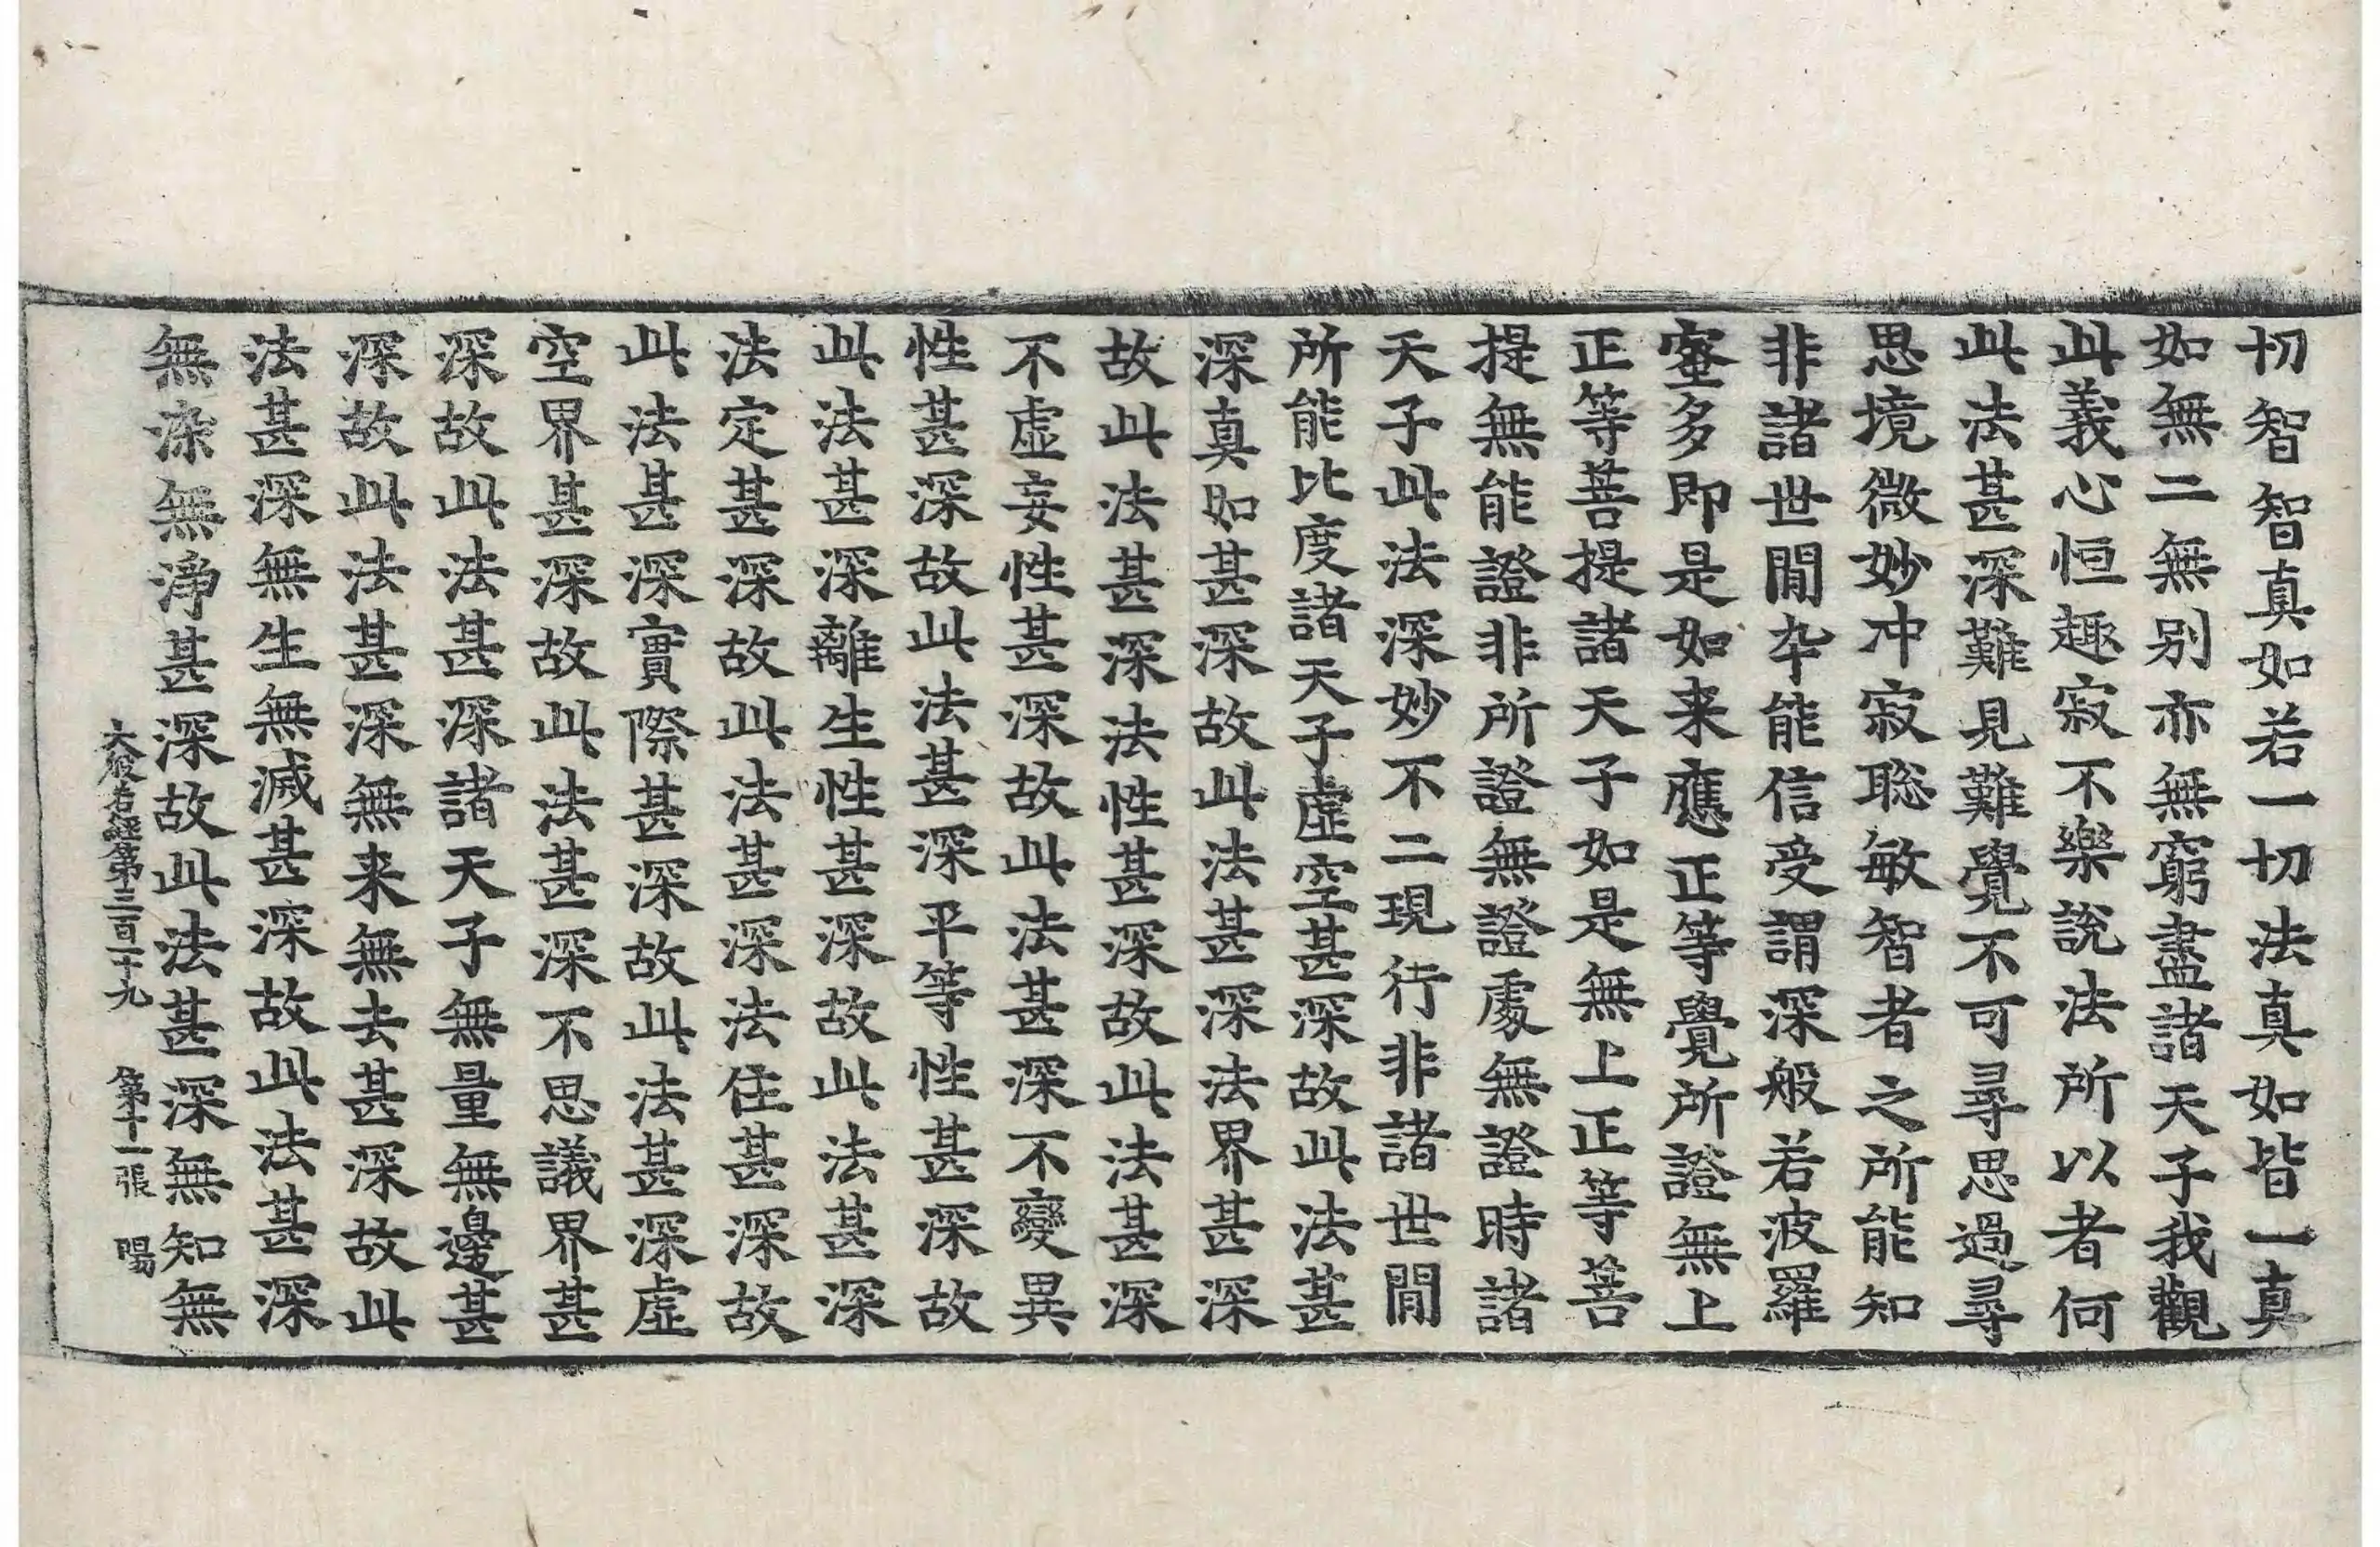 切智智真如若一切法真如皆一真
如無二無別亦無窮盡諸天子我觀
此義心恒趣寂不樂說法所以者何
此法甚深難見難覺不可尋思過尋
思境微妙冲寂聡敏智者之所能知
非諸世閒卒能信受謂深般若波羅
蜜多即是如来應正等覺所證無上
正等菩提諸天子如是無上正等菩
提無能證非所證無證處無證時諸
天子此法深妙不二現行非諸世閒
所能比度諸天子虛空甚深故此法甚
深真如甚深故此法甚深法界甚深
故此法甚深法性甚深故此法甚深
不虛妄性甚深故此法甚深不變異
性甚深故此法甚深平等性甚深故
此法甚深離生性甚深故此法甚深
法定甚深故此法甚深法住甚深故
此法甚深實際甚深故此法甚深虛
空界甚深故此法甚深不思議界甚
深故此法甚深諸天子無量無邊甚
深故此法甚深無来無去甚深故此
法甚深無生無滅甚深故此法甚深
無染無淨甚深故此法甚深無知無
大般若經第三百一十九 第十一張 陽